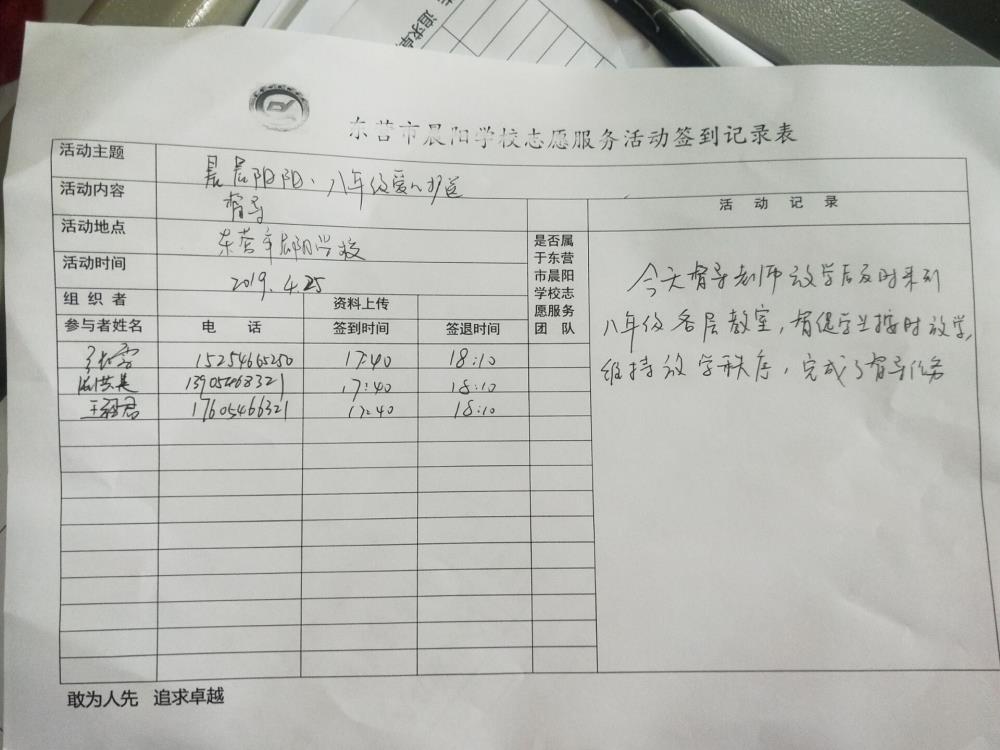 追求卓
东营市晨阳学校志愿服务活动签到记录表
活动主题 晨晨阳阳、八年级爱心护送
活动内容 督导
活动记录
活动地点 东营市晨阳学校
活动时间 2019.4.25
是否属于东营市晨阳学校志愿服务团队
组织者 资料上传
参与者姓名 电话 签到时间 签退时间
15254665250 17:40 18:10
13905468321 17:40 18:10
17605466321 17:40 18:10
今天督导老师放学后及时来到
八年级各层教室，督促学生按时放学，
维持放学秩序，完成了督导任务
敢为人先 追求卓越